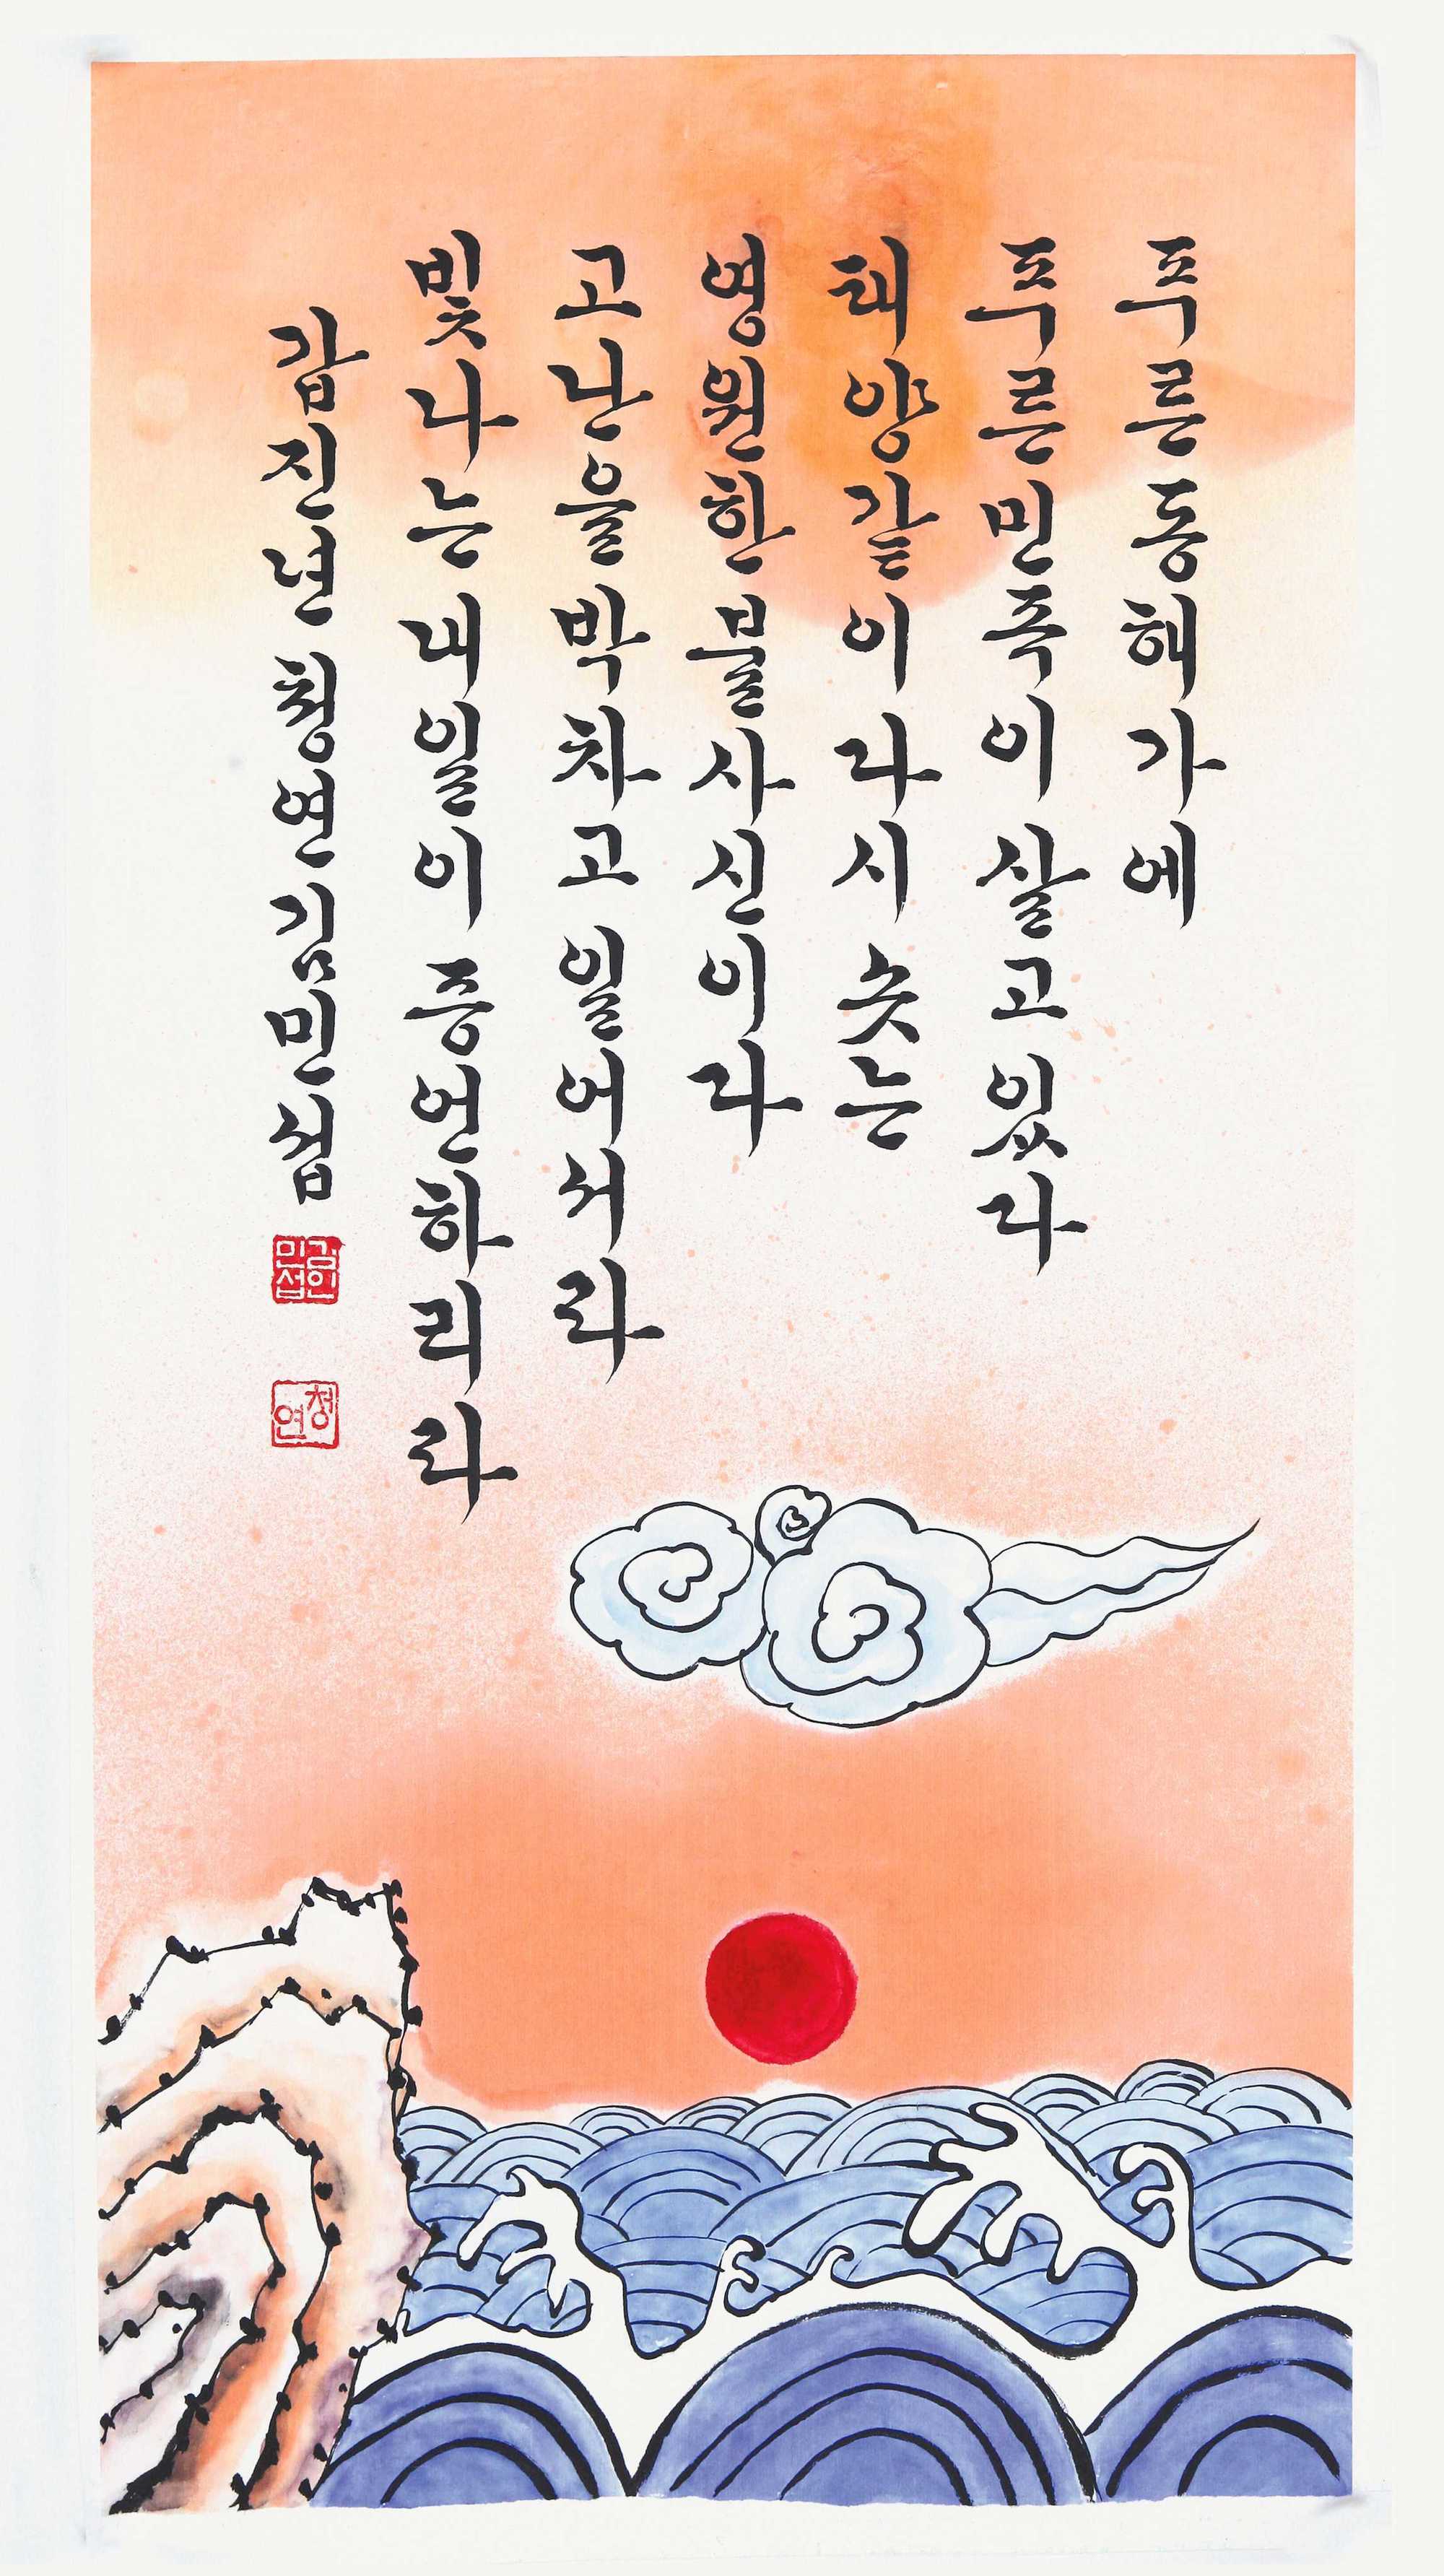 푸른 동해 가에
푸른 민족이 살고 있다
태양같이 다시 솟는
영원한 불사신이다
고난을 박차고 일어서라
빛나는 내일이 증언하리라
갑진년 청연 김민섭
김민섭인
청연